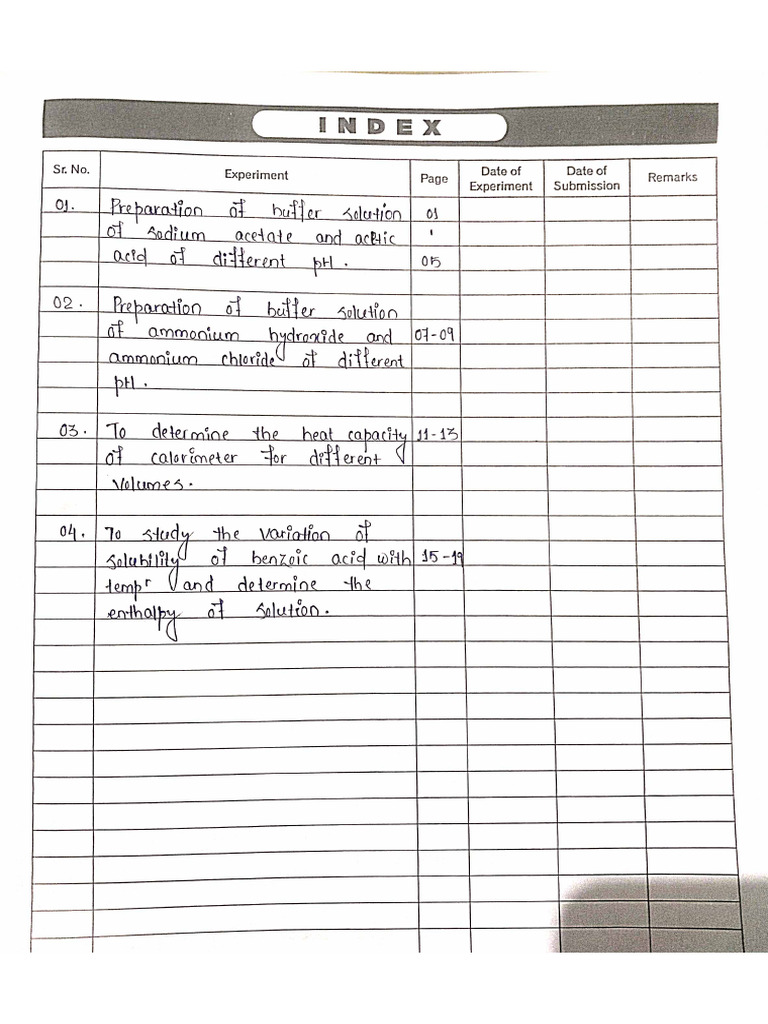 INDEX
Sr. No. Experiment Page Date of Experiment Date of Submission Remarks
01. Preparation of buffer solution 01
of sodium acetate and acetic '
acid of different pH. 05
02. Preparation of buffer solution
of ammonium hydroxide and 07-09
ammonium chloride of different
pH.
03. To determine the heat capacity 11-13
of calorimeter for different
volumes.
04. To study the variation of
solubility of benzoic acid with 15-19
tempr and determine the
enthalpy of solution.